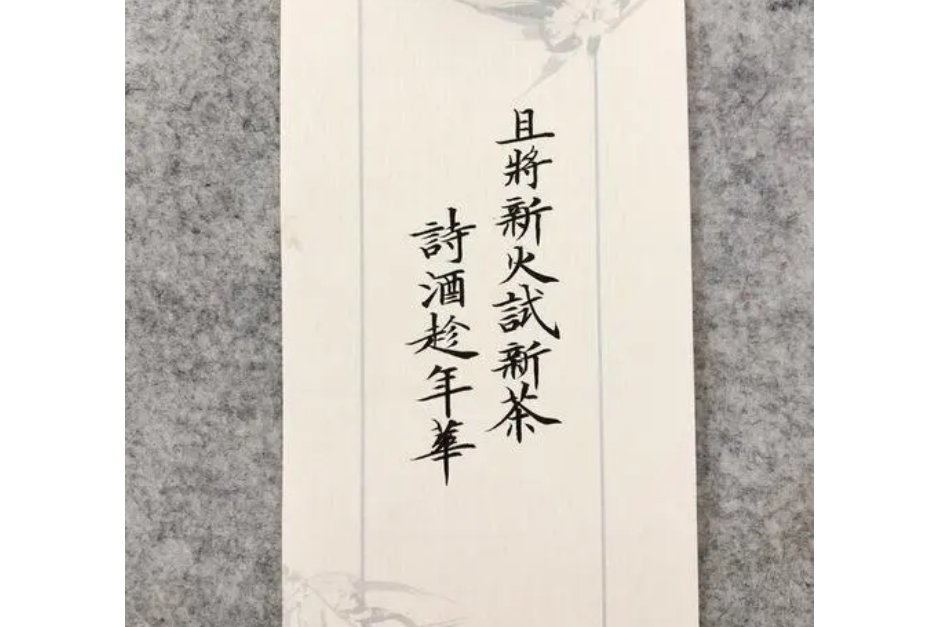 且將新火試新茶
詩酒趁年華